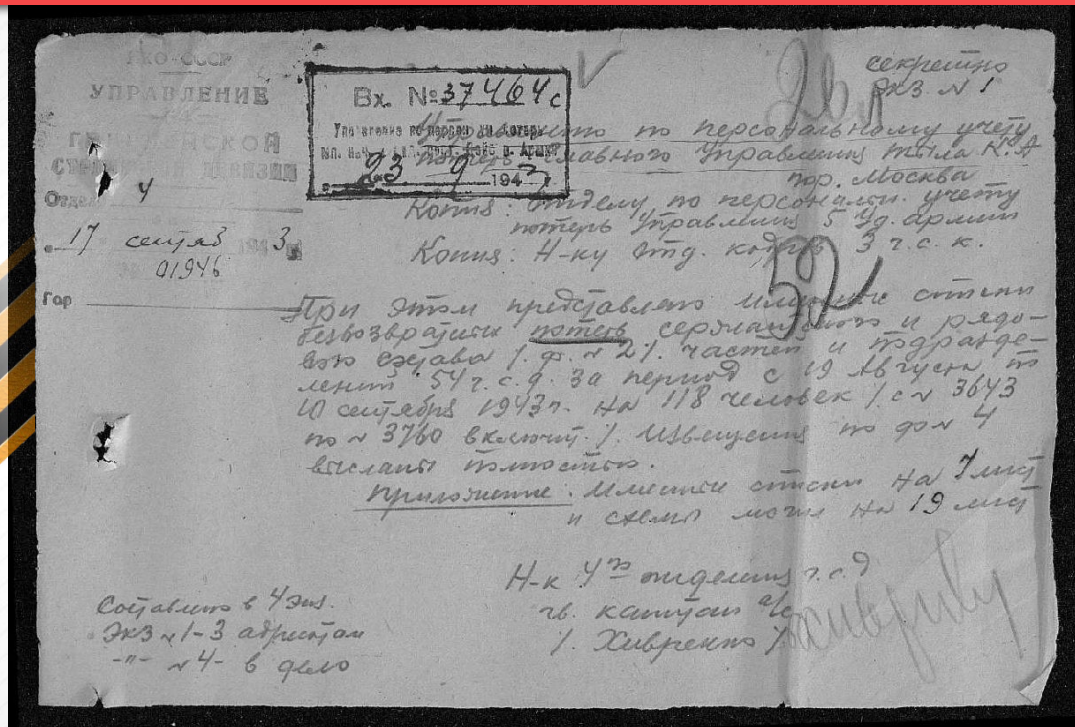 НКО-СССР
УПРАВЛЕНИЕ
ГВАРДЕЙСКОЙ
СТРЕЛКОВОЙ ДИВИЗИИ
Отдел 4
17 сентяб 1943 г.
01946
Гор
Вх. № 37464с
Управление по персон. уч. потерь
23 9 1943 г.
26
секретно
экз. № 1
Управлению по персональному учету
потерь главного Управления тыла К.А
гор. Москва
Копия: отделу по персональн. учету
потерь Управления 5 уд. армии
Копия: Н-ку отд. кадров 3 г.с.к.
52
При этом представляю именные списки
безвозвратных потерь сержантского и рядо-
вого состава /.ф. № 2/. частей и подразде-
лений 54 г.с.д. за период с 19 Августа по
10 сентября 1943г. на 118 человек /. с № 3643
по № 3760 включит. /. Извещения по ф № 4
высланы полностью.
Приложение: Именные списки на 7 лист
и схемы могил на 19 лист
Н-к 4го отделения г.с.д
гв. капитан а/с
/. Хивренко /.
Составлено в 4 экз.
Экз № 1-3 адресатам
-"- № 4- в дело